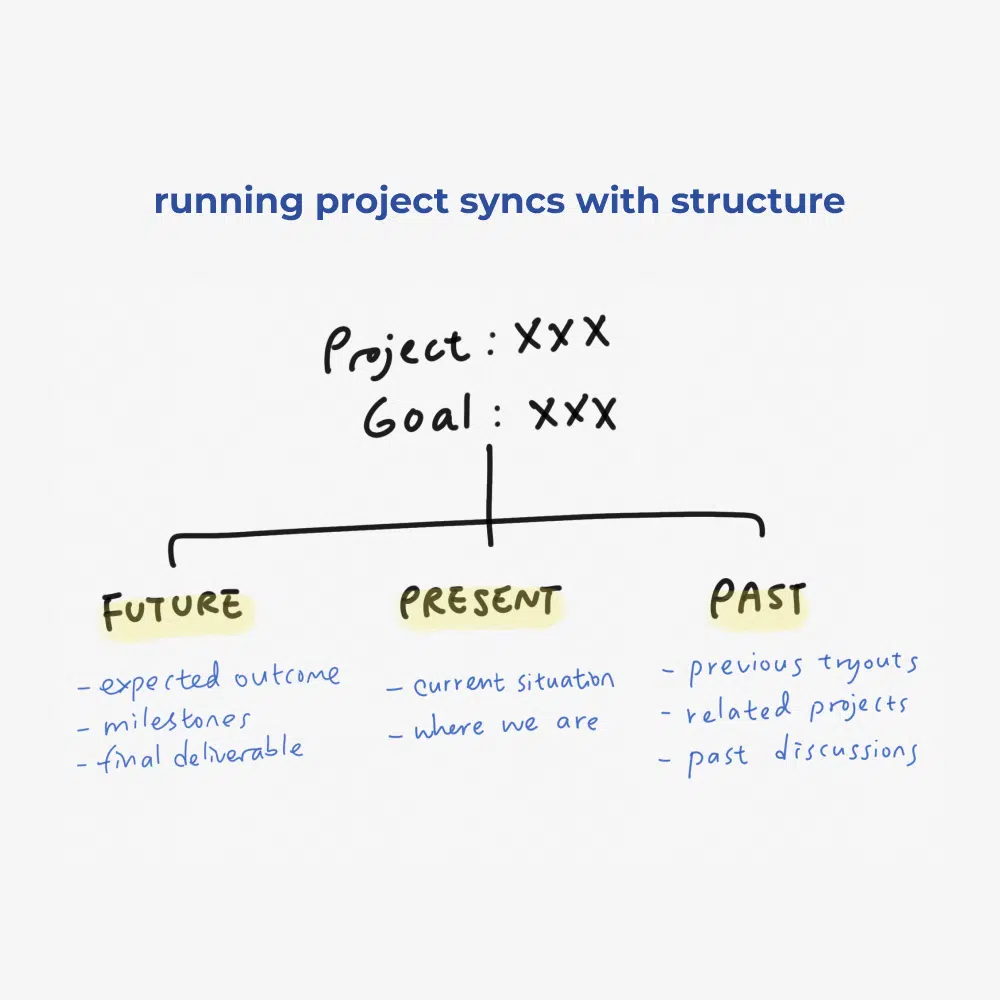 running project syncs with structure
Project : XXX
Goal : XXX
FUTURE
- expected outcome
- milestones
- final deliverable
PRESENT
- current situation
- where we are
PAST
- previous tryouts
- related projects
- past discussions